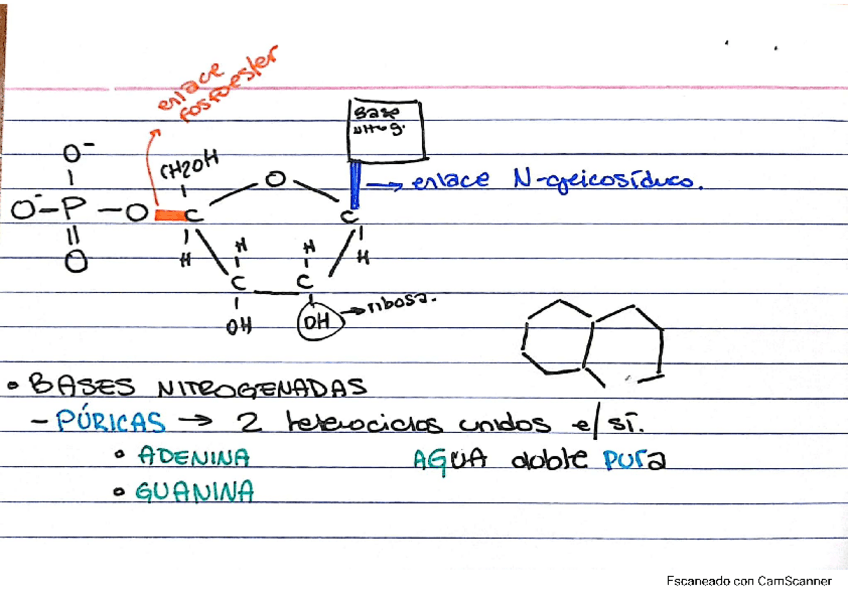 enlace
fosfoester
Base
nitrog.
O⁻
CH2OH
O
enlace N-glicosídico.
O⁻ – P – O C C
O
H H H H
C C
OH OH → ribosa.
• BASES NITROGENADAS
– PÚRICAS → 2 heterociclos unidos e/ sí.
• ADENINA AGUA doble pura
• GUANINA
Escaneado con CamScanner